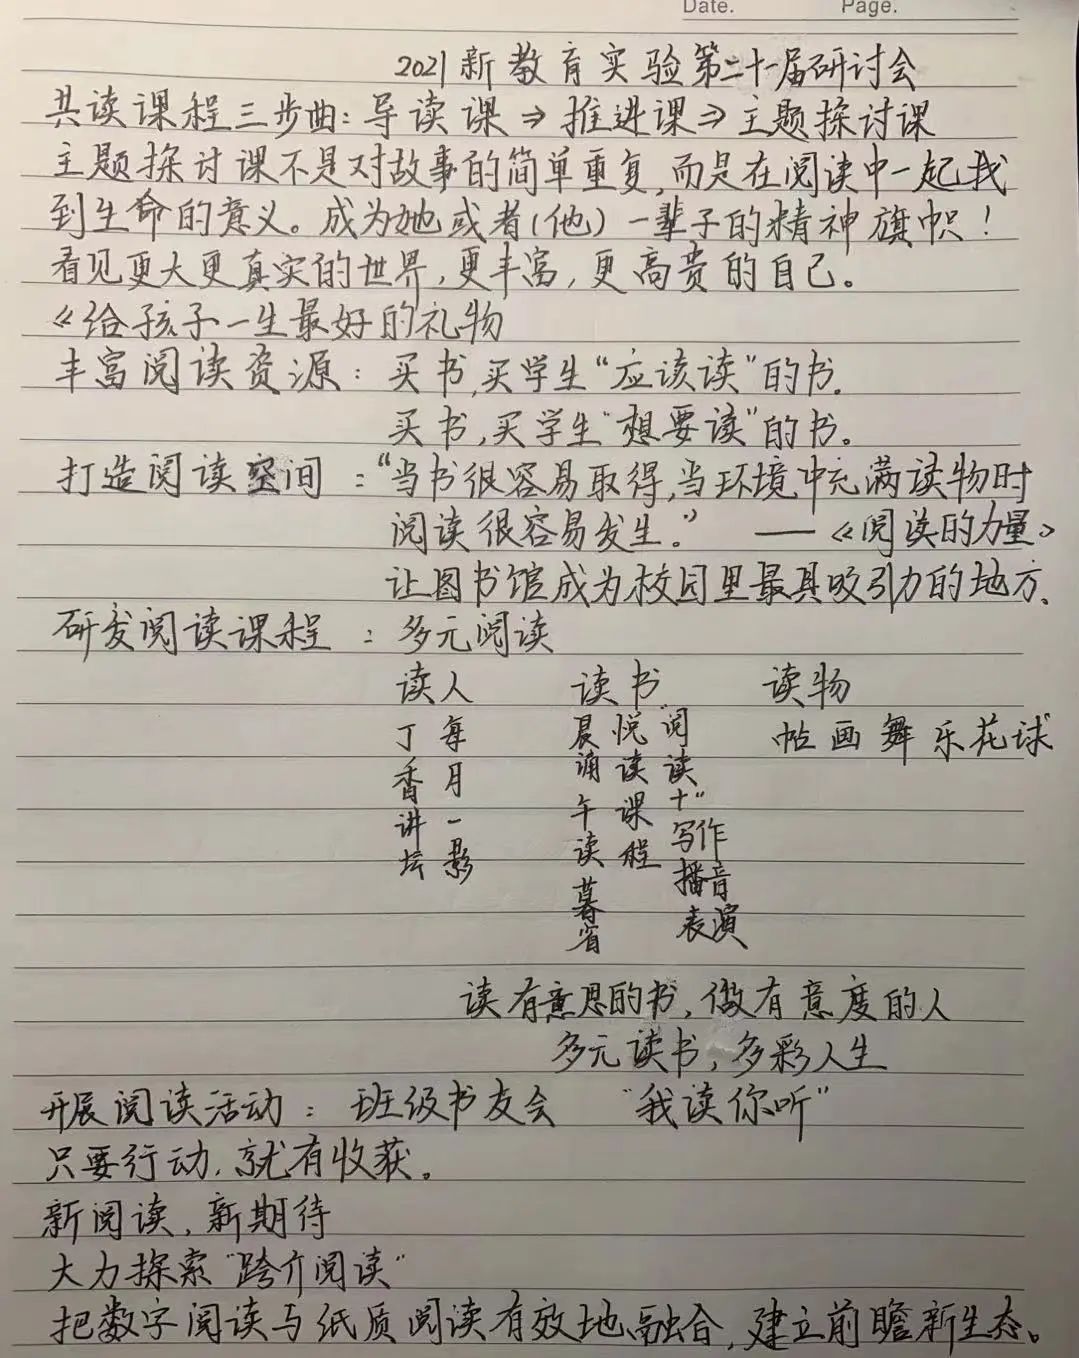 Date. Page.
2021新教育实验第二十一届研讨会
共读课程三步曲：导读课⇒推进课⇒主题探讨课
主题探讨课不是对故事的简单重复，而是在阅读中一起找
到生命的意义。成为她或者（他）一辈子的精神旗帜！
看见更大更真实的世界，更丰富，更高贵的自己。
《给孩子一生最好的礼物
丰富阅读资源：买书，买学生“应该读”的书.
买书，买学生“想要读”的书。
打造阅读空间：“当书很容易取得，当环境中充满读物时
阅读很容易发生。” ——《阅读的力量》
让图书馆成为校园里最具吸引力的地方.
研发阅读课程：多元阅读
读人 读书 读物
丁香讲坛
每月一影
晨诵午读暮省
悦读课程
“阅读十”写作播音表演
帖画舞乐花球
读有意思的书，做有意度的人
多元读书，多彩人生
开展阅读活动：班级书友会 “我读你听”
只要行动，就有收获。
新阅读，新期待
大力探索“跨介阅读”
把数字阅读与纸质阅读有效地融合，建立前瞻新生态。